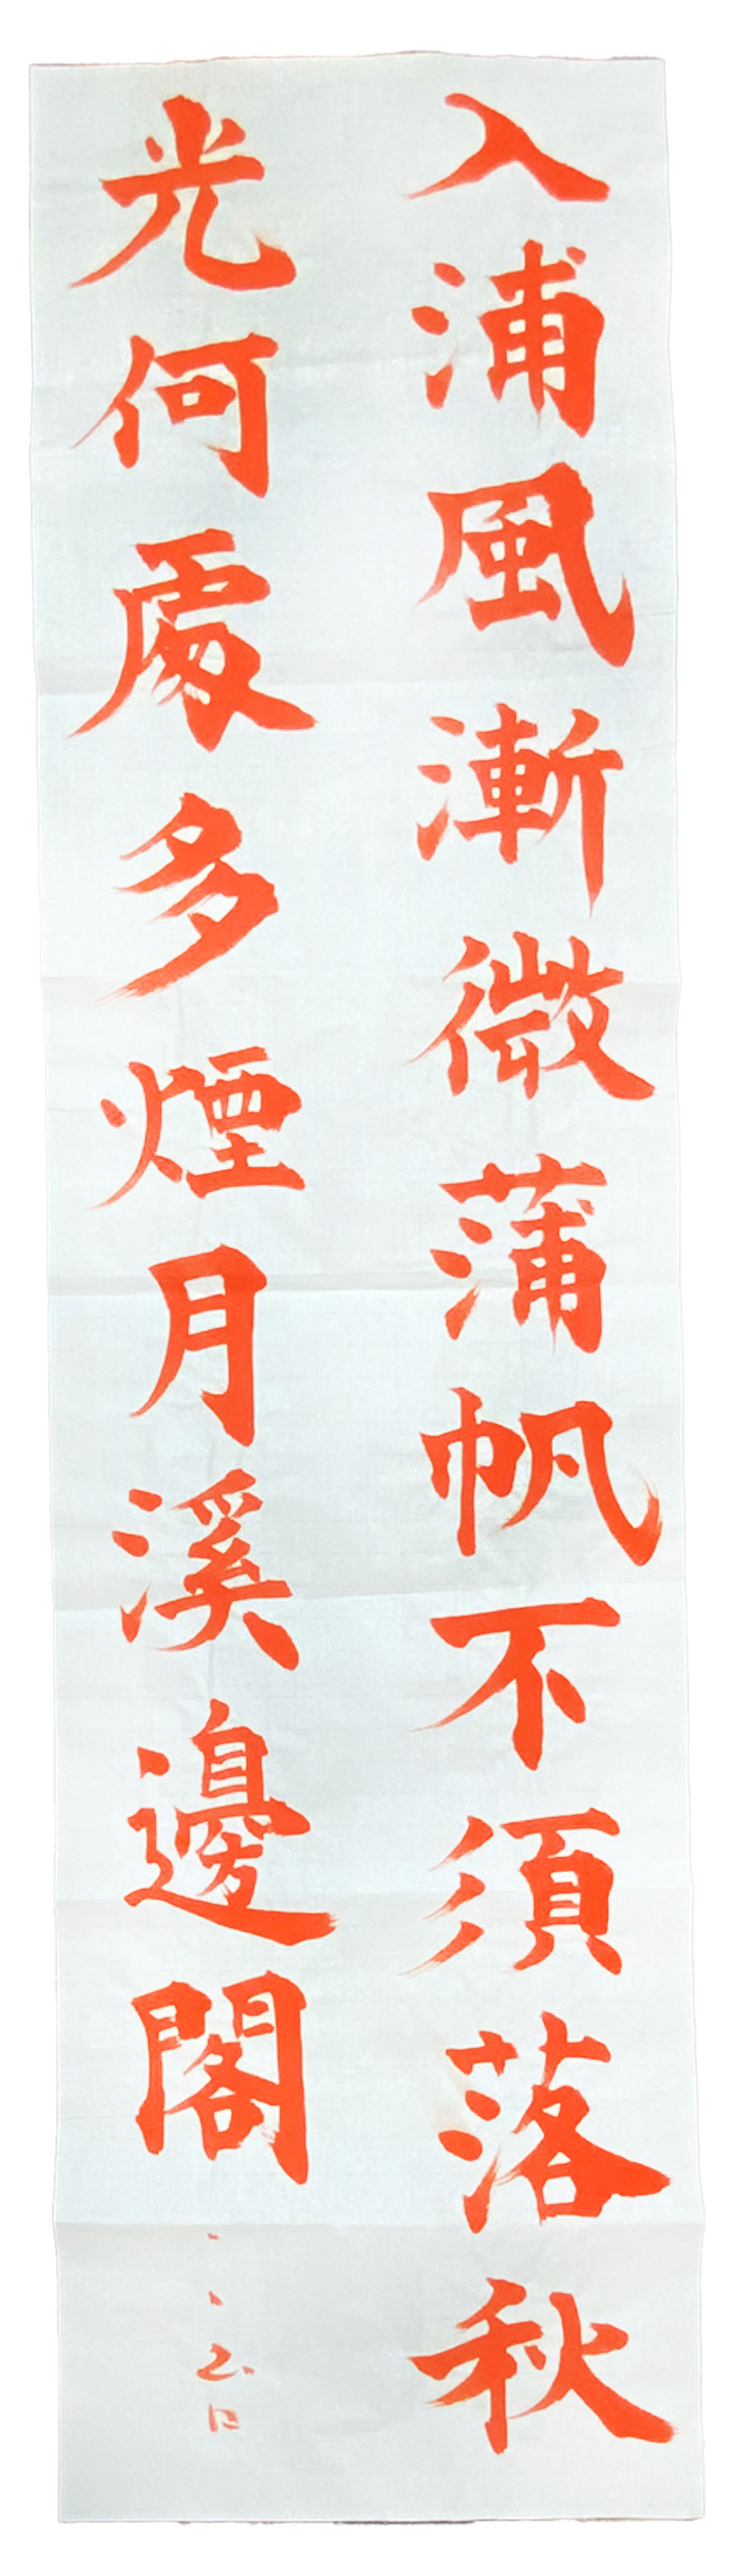 入浦風漸微蒲帆不須落秋
光何處多煙月溪邊閣